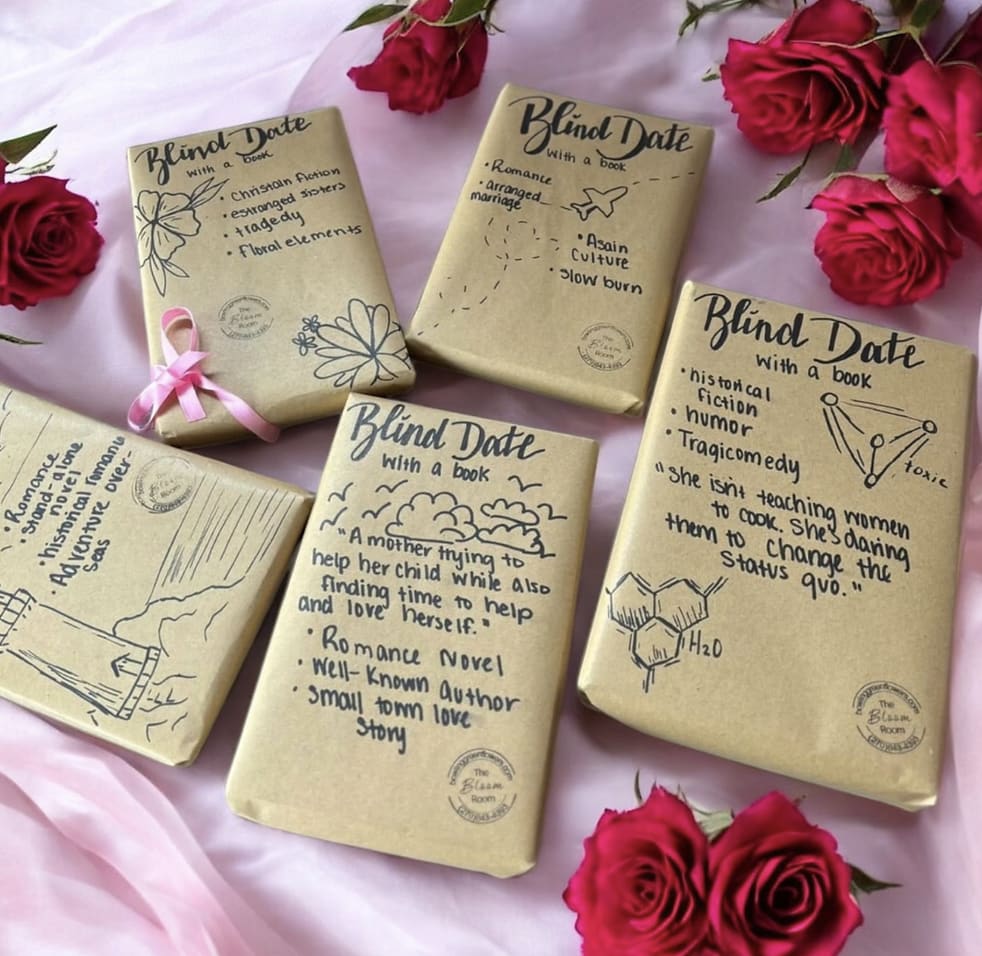 Blind Date
with a book
• Christain fiction
• estranged sisters
• tragedy
• Floral elements
The
Bloom
Room
Blind Date
with a book
• Romance
• arranged
marriage
• Asain
Culture
• slow burn
The
Bloom
Room
Blind Date
with a book
• historical
fiction
• humor
• Tragicomedy
toxic
"she isn't teaching women
to cook. She's daring
them to change the
Status quo."
H2O
bowlinggreenflowers.com
The
Bloom
Room
(270)843-4393
• Romance
• Stand-alone
novel
• historical romance
• Adventure over-
seas
Blind Date
with a book
"A mother trying to
help her child while also
finding time to help
and love herself."
• Romance Novel
• Well-Known author
• Small town love
Story
bowlinggreenflowers.com
The
Bloom
Room
(270)843-4393